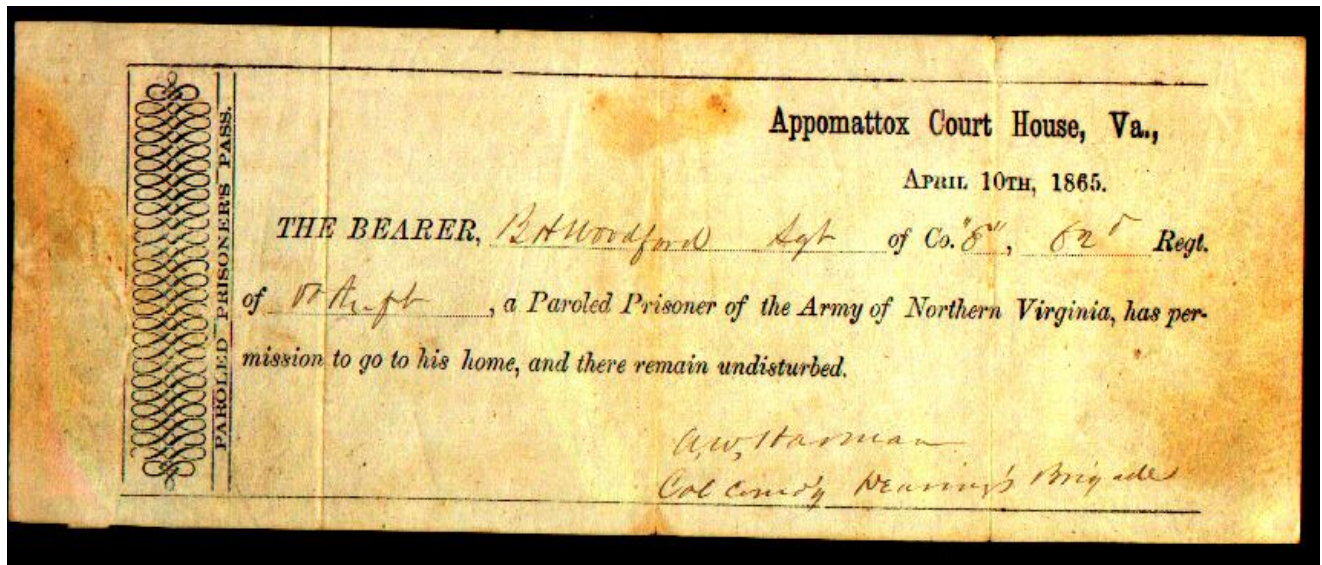 PAROLED PRISONER'S PASS.
Appomattox Court House, Va.,
APRIL 10TH, 1865.
THE BEARER, B H Woodford Sgt of Co. , 62d Regt.
of , a Paroled Prisoner of the Army of Northern Virginia, has per-
mission to go to his home, and there remain undisturbed.
A, W, Harman
Col Comd'g Dearing's Brigade